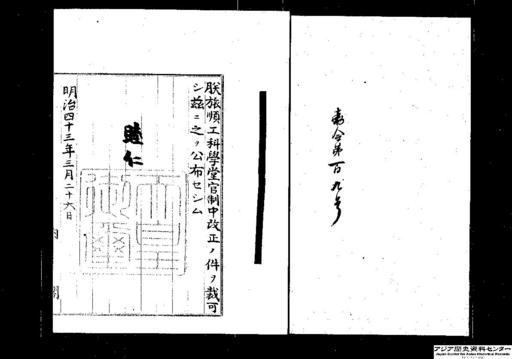 勅令第百九号
朕旅順工科學堂官制中改正ノ件ヲ裁可
シ茲ニ之ヲ公布セシム
睦仁
天皇御璽
明治四十三年三月二十六日
内閣
アジア歴史資料センター
Japan Center for Asian Historical Records